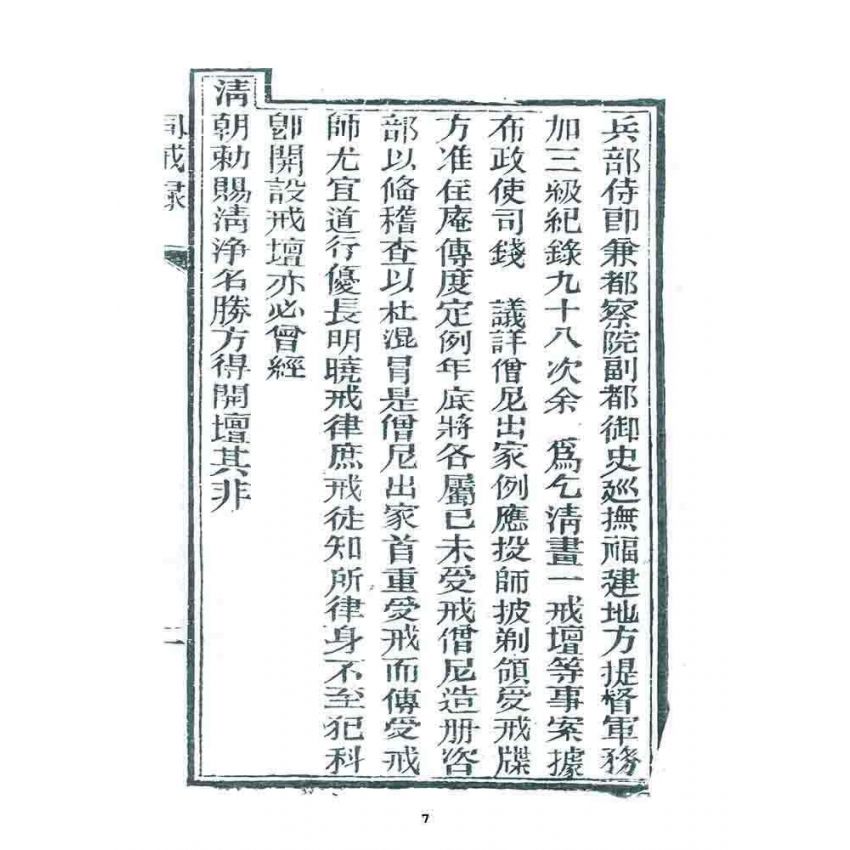 兵部侍郎兼都察院副都御史巡撫福建地方提督軍務
加三級紀錄九十八次余　爲乞淸畫一戒壇等事案據
布政使司錢　議詳僧尼出家例應投師披剃領受戒牒
方准住庵傳度定例年底將各屬已未受戒僧尼造册咨
部以俻稽查以杜混冒是僧尼出家首重受戒而傳受戒
師尤宜道行優長明曉戒律庶戒徒知所律身不至犯科
卽開設戒壇亦必曾經
淸朝勅賜淸淨名勝方得開壇其非
同戒彔
二
7